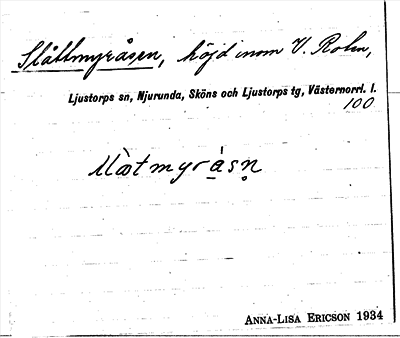 Slåttmyråsen, höjd inom V. Rolen,
Ljustorps sn, Njurunda, Sköns och Ljustorps tg, Västernorrl. l.
100
ANNA-LISA ERICSON 1934